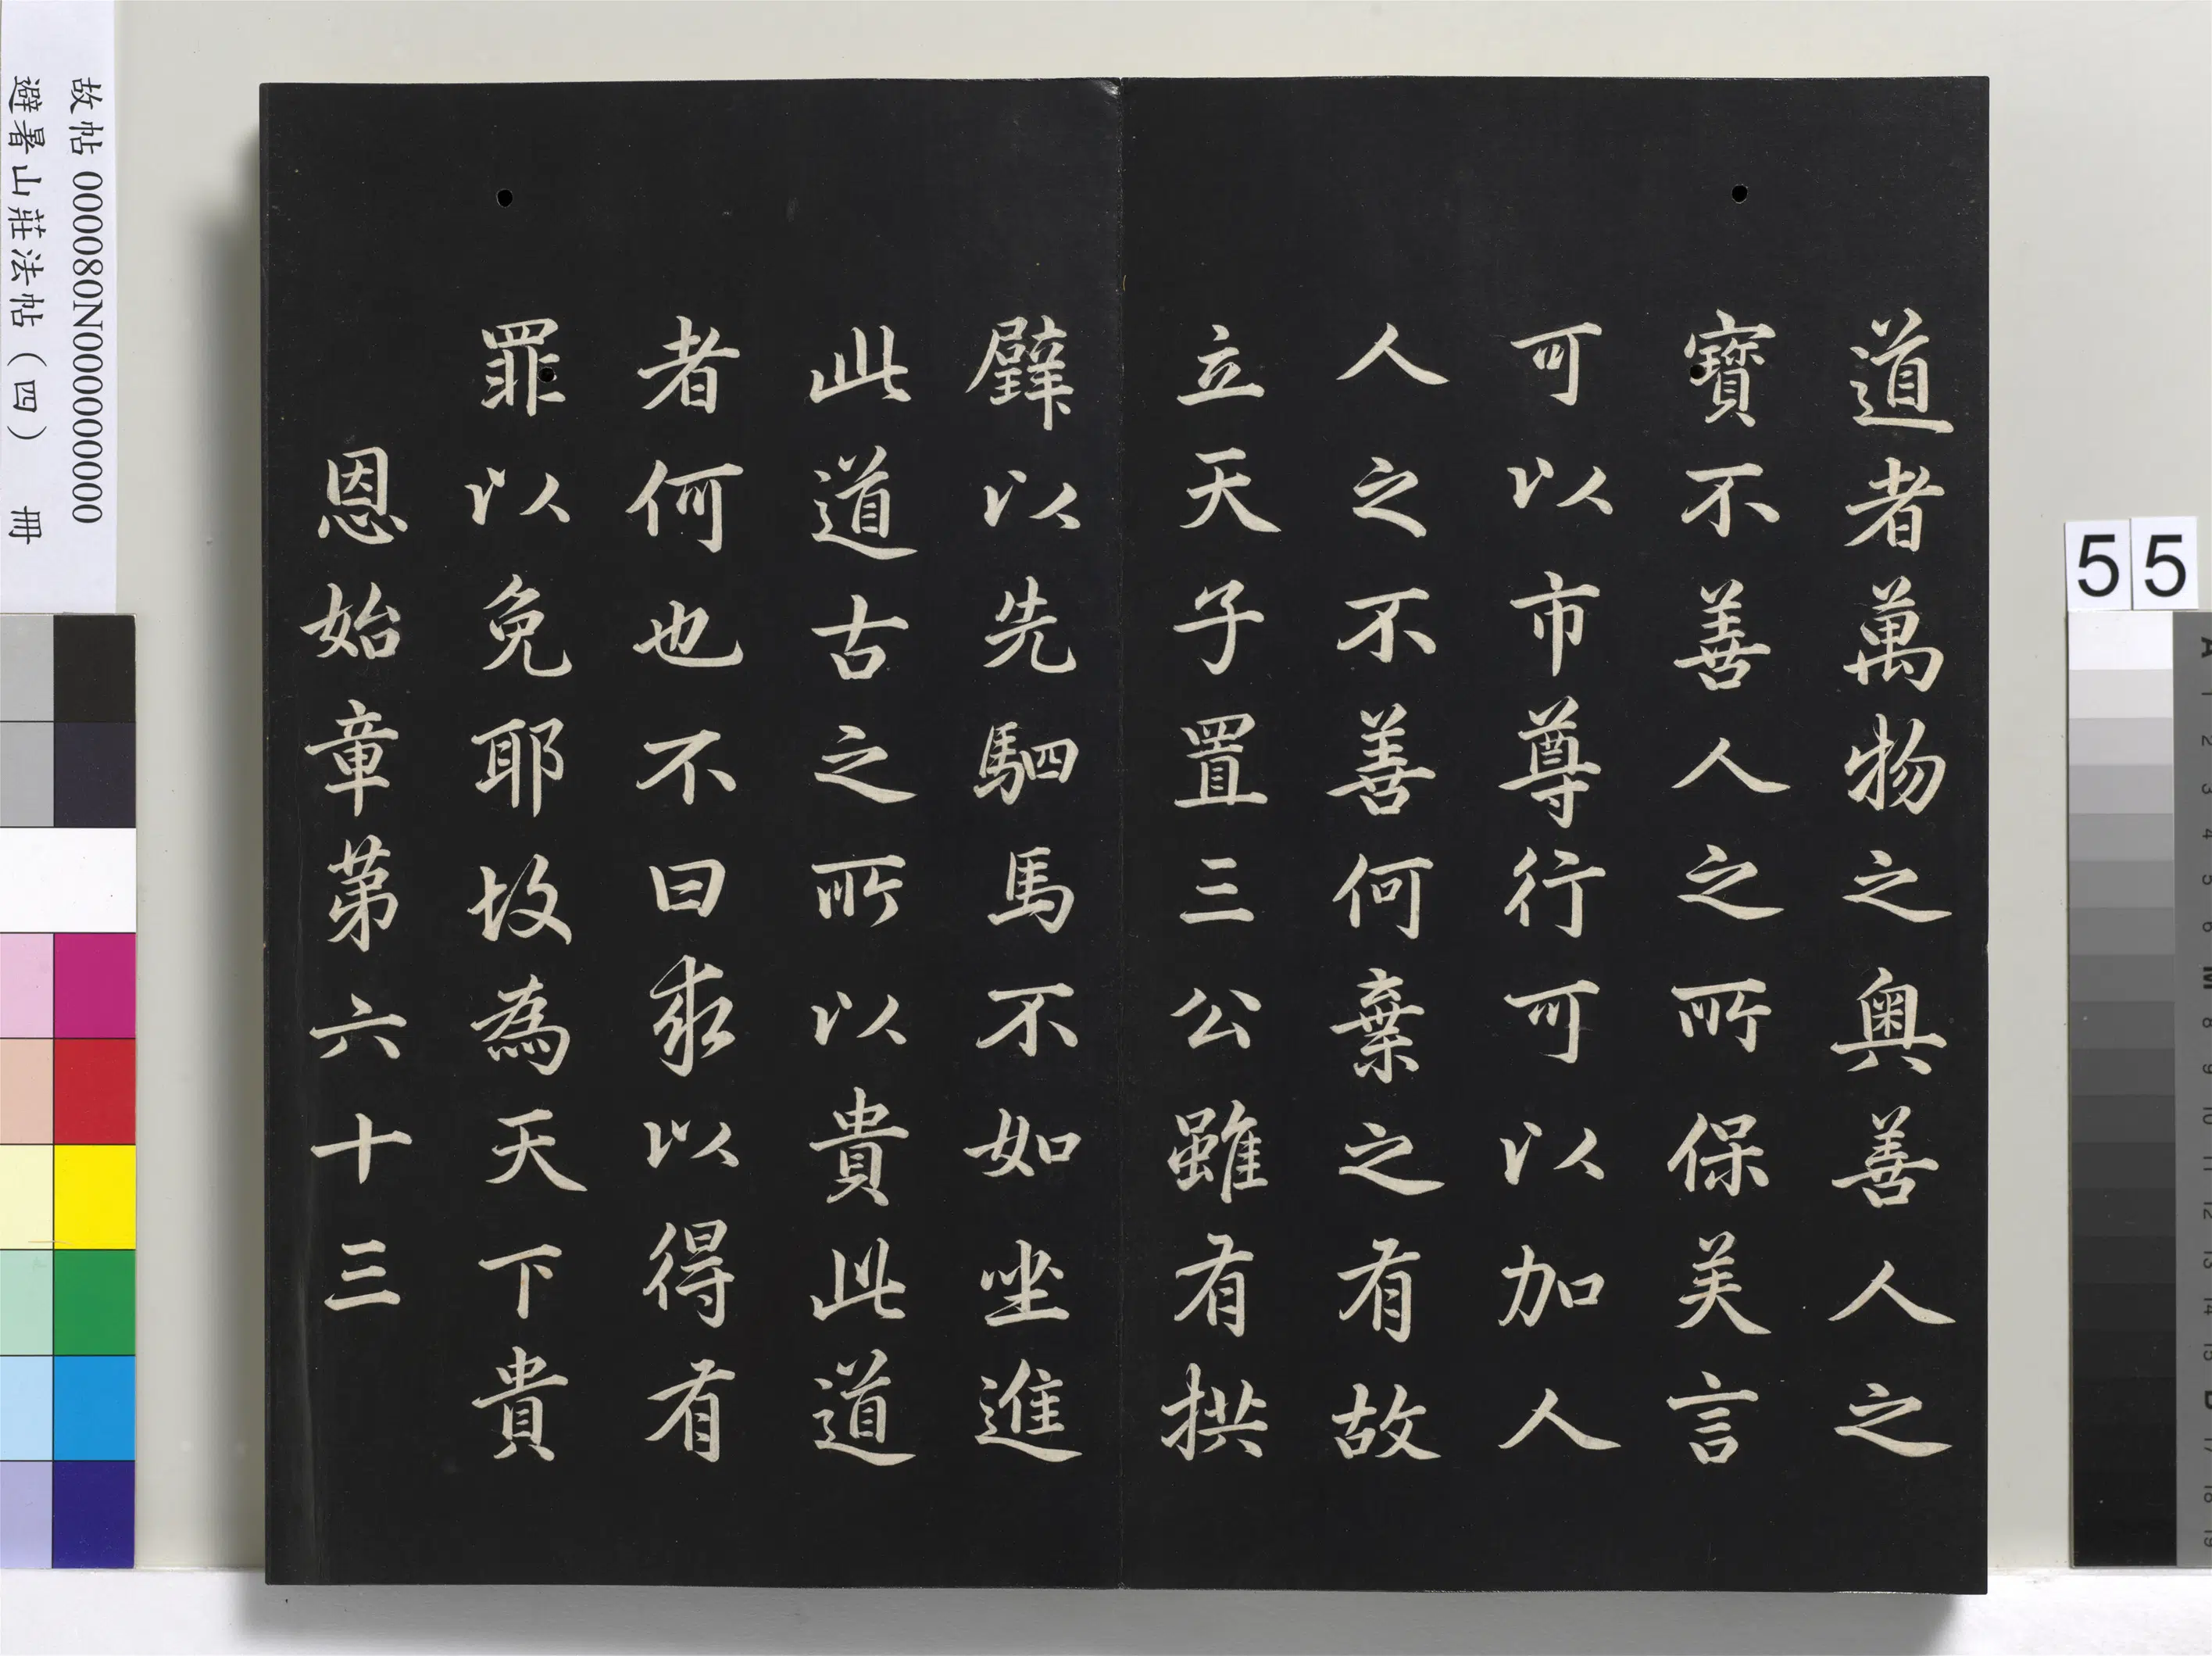 道者萬物之奧善人之
寶不善人之所保美言
可以市尊行可以加人
人之不善何棄之有故
立天子置三公雖有拱
璧以先駟馬不如坐進
此道古之所以貴此道
者何也不曰求以得有
罪以免耶故為天下貴
恩始章第六十三
故帖 000080N000000000
避暑山莊法帖（四） 冊
55